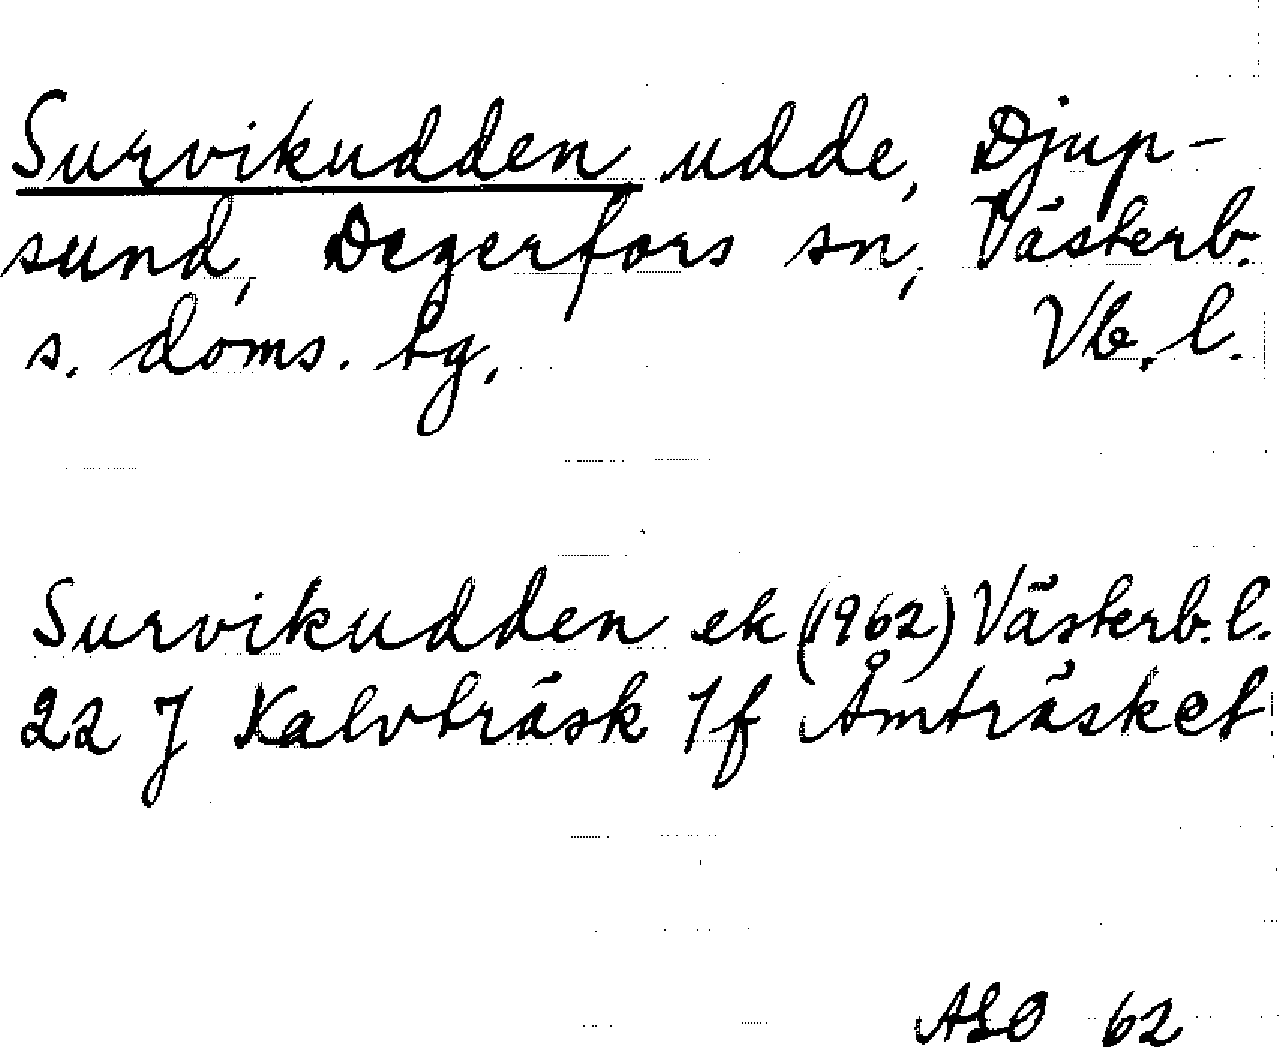 Survikudden udde, Djup-
sund, Degerfors sn, Västerb.
s. doms. tg, Vb. l.
Survikudden ek (1962) Västerb. l.
22 J Kalvträsk 7f Åmträsket
ALO 62